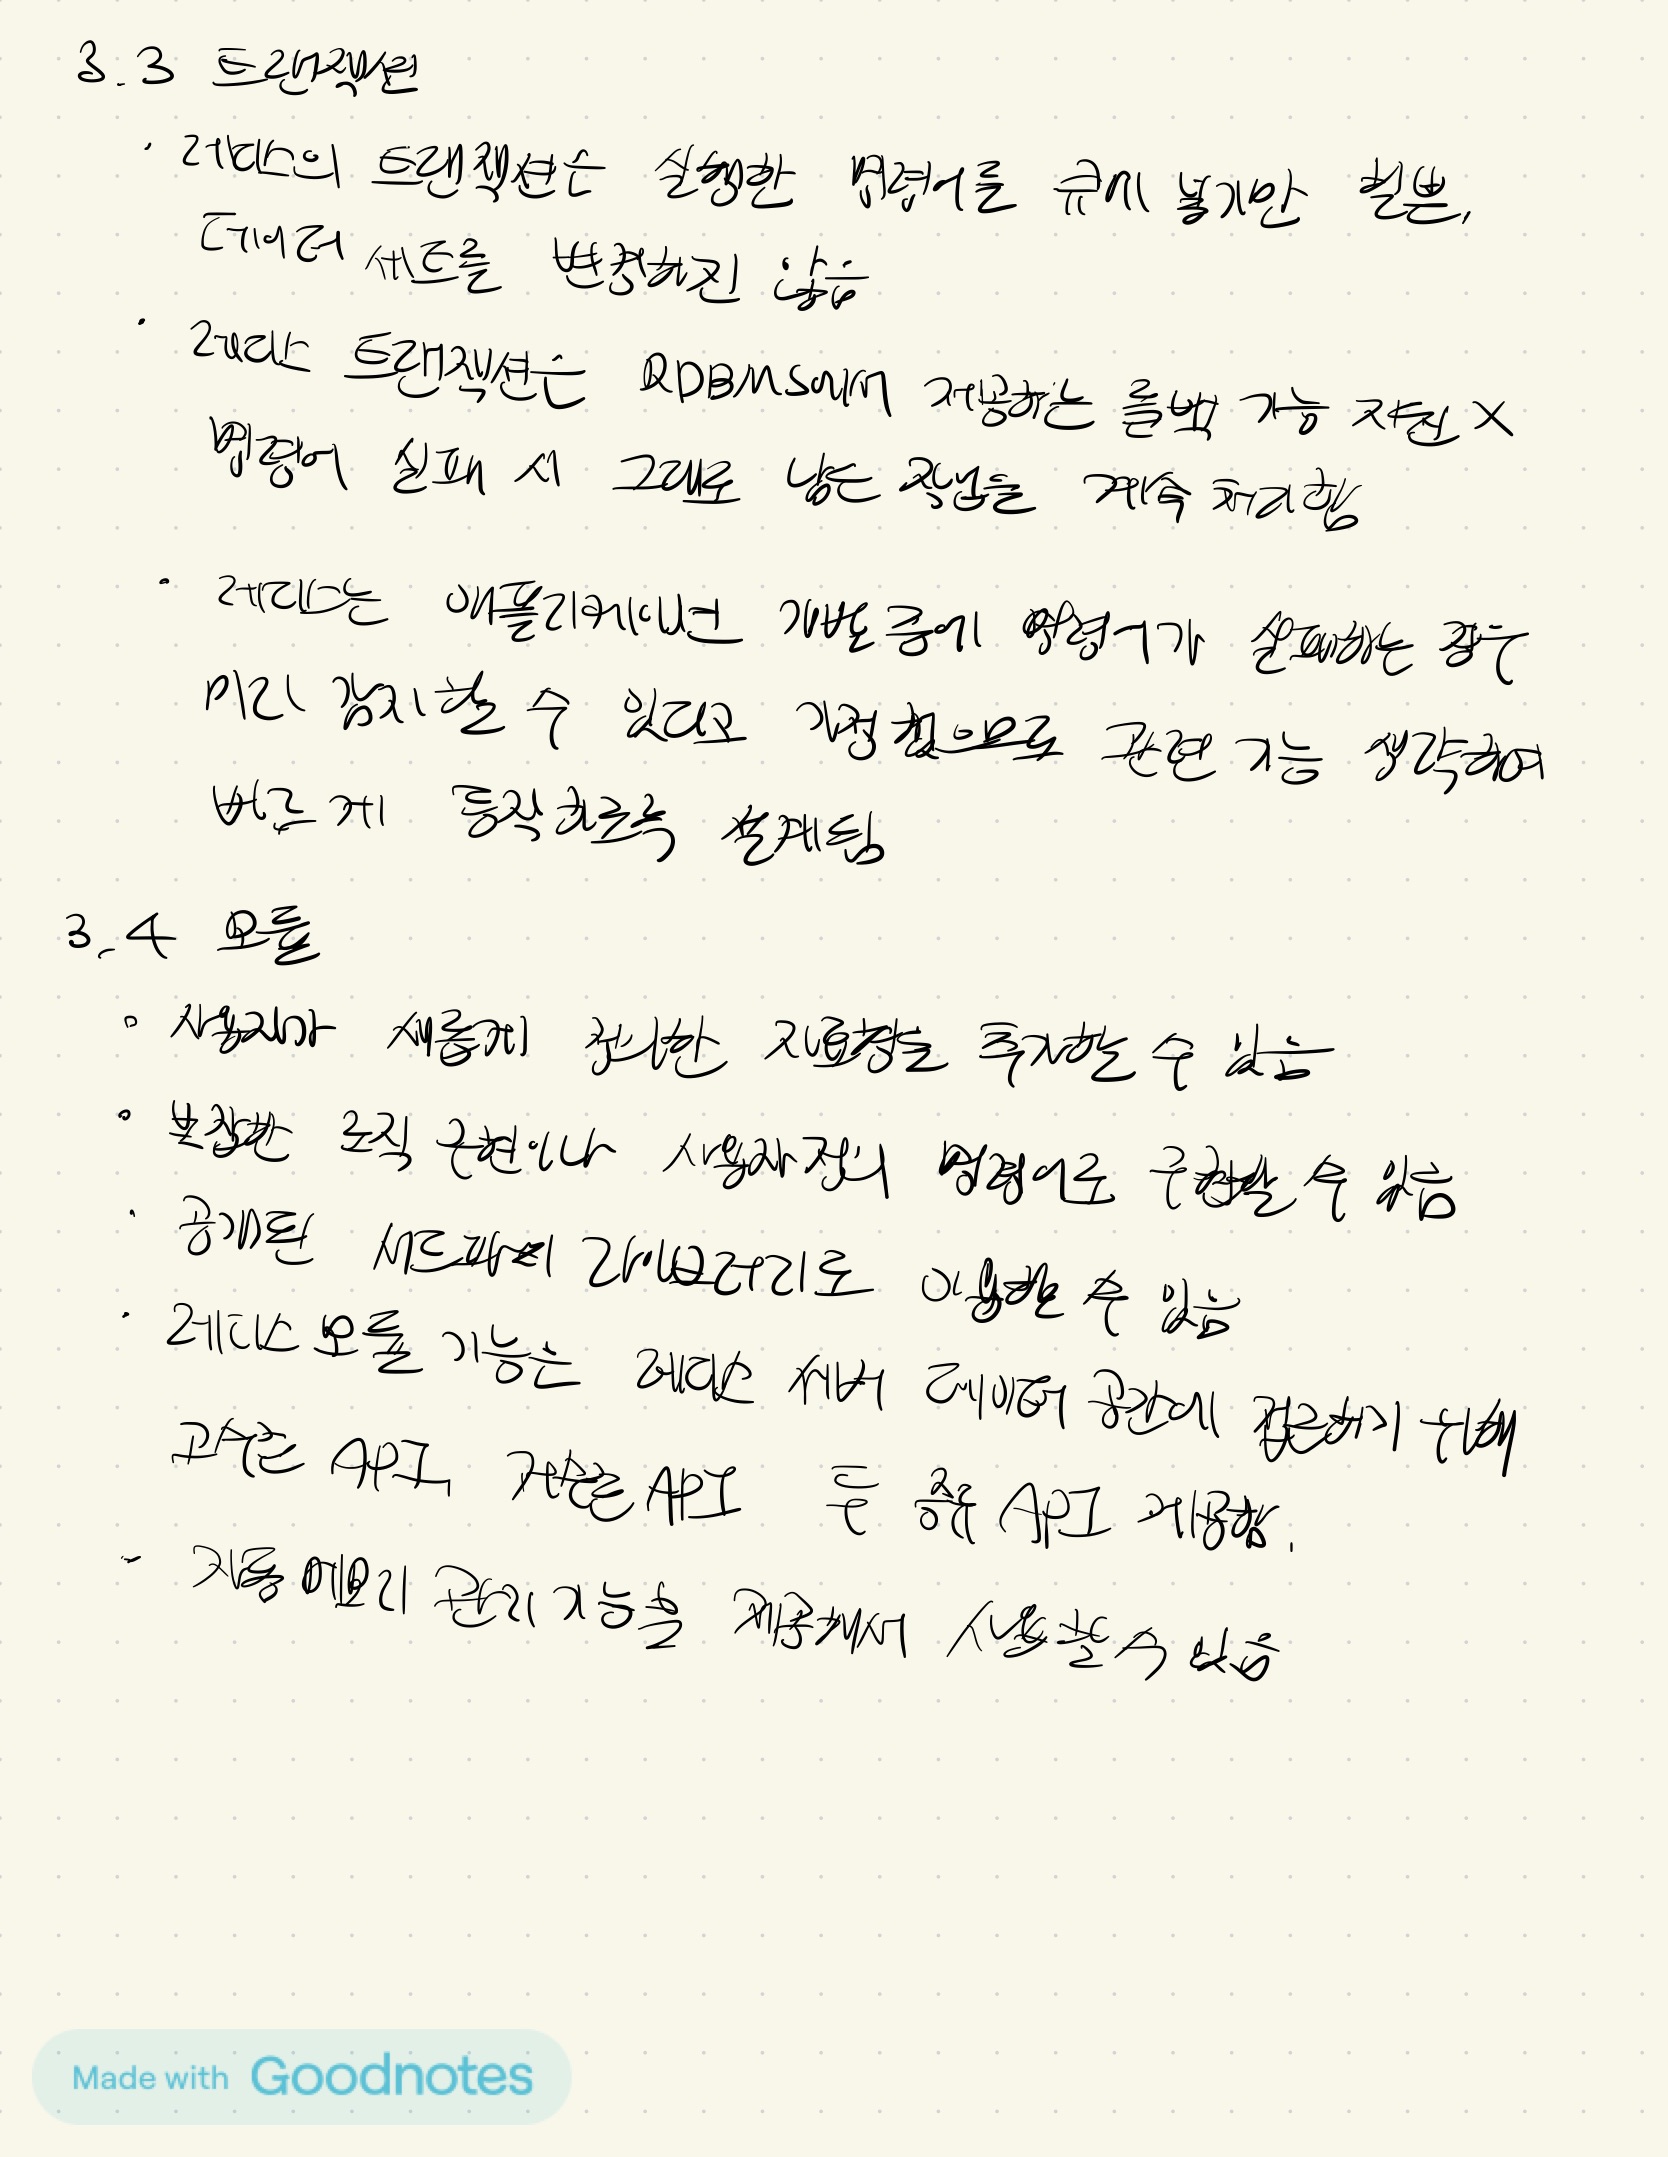 3.3 트랜잭션
· 레디스의 트랜잭션은 실행한 명령어를 큐에 넣기만 할뿐,
데이터 세트를 변경하진 않음
· 레디스 트랜잭션은 RDBMS에서 제공하는 롤백 기능 지원 X
명령어 실패 시 그대로 남은 작업을 계속 처리함
· 레디스는 애플리케이션 개발 중에 명령어가 실패하는 경우
미리 감지할 수 있다고 가정함으로 관련 기능 생략하여
빠르게 동작하도록 설계됨
3.4 모듈
· 사용자가 새롭게 정의한 자료형을 추가할 수 있음
· 복잡한 로직 구현이나 사용자 정의 명령어로 구현할 수 있음
· 공개된 서드파티 라이브러리로 이용할 수 있음
· 레디스 모듈 기능은 레디스 서버 데이터 공간에 접근하기 위해
고수준 API, 저수준 API 두 종류 API 제공함.
- 자동 메모리 관리 기능을 제공해서 사용할 수 있음
Made with Goodnotes